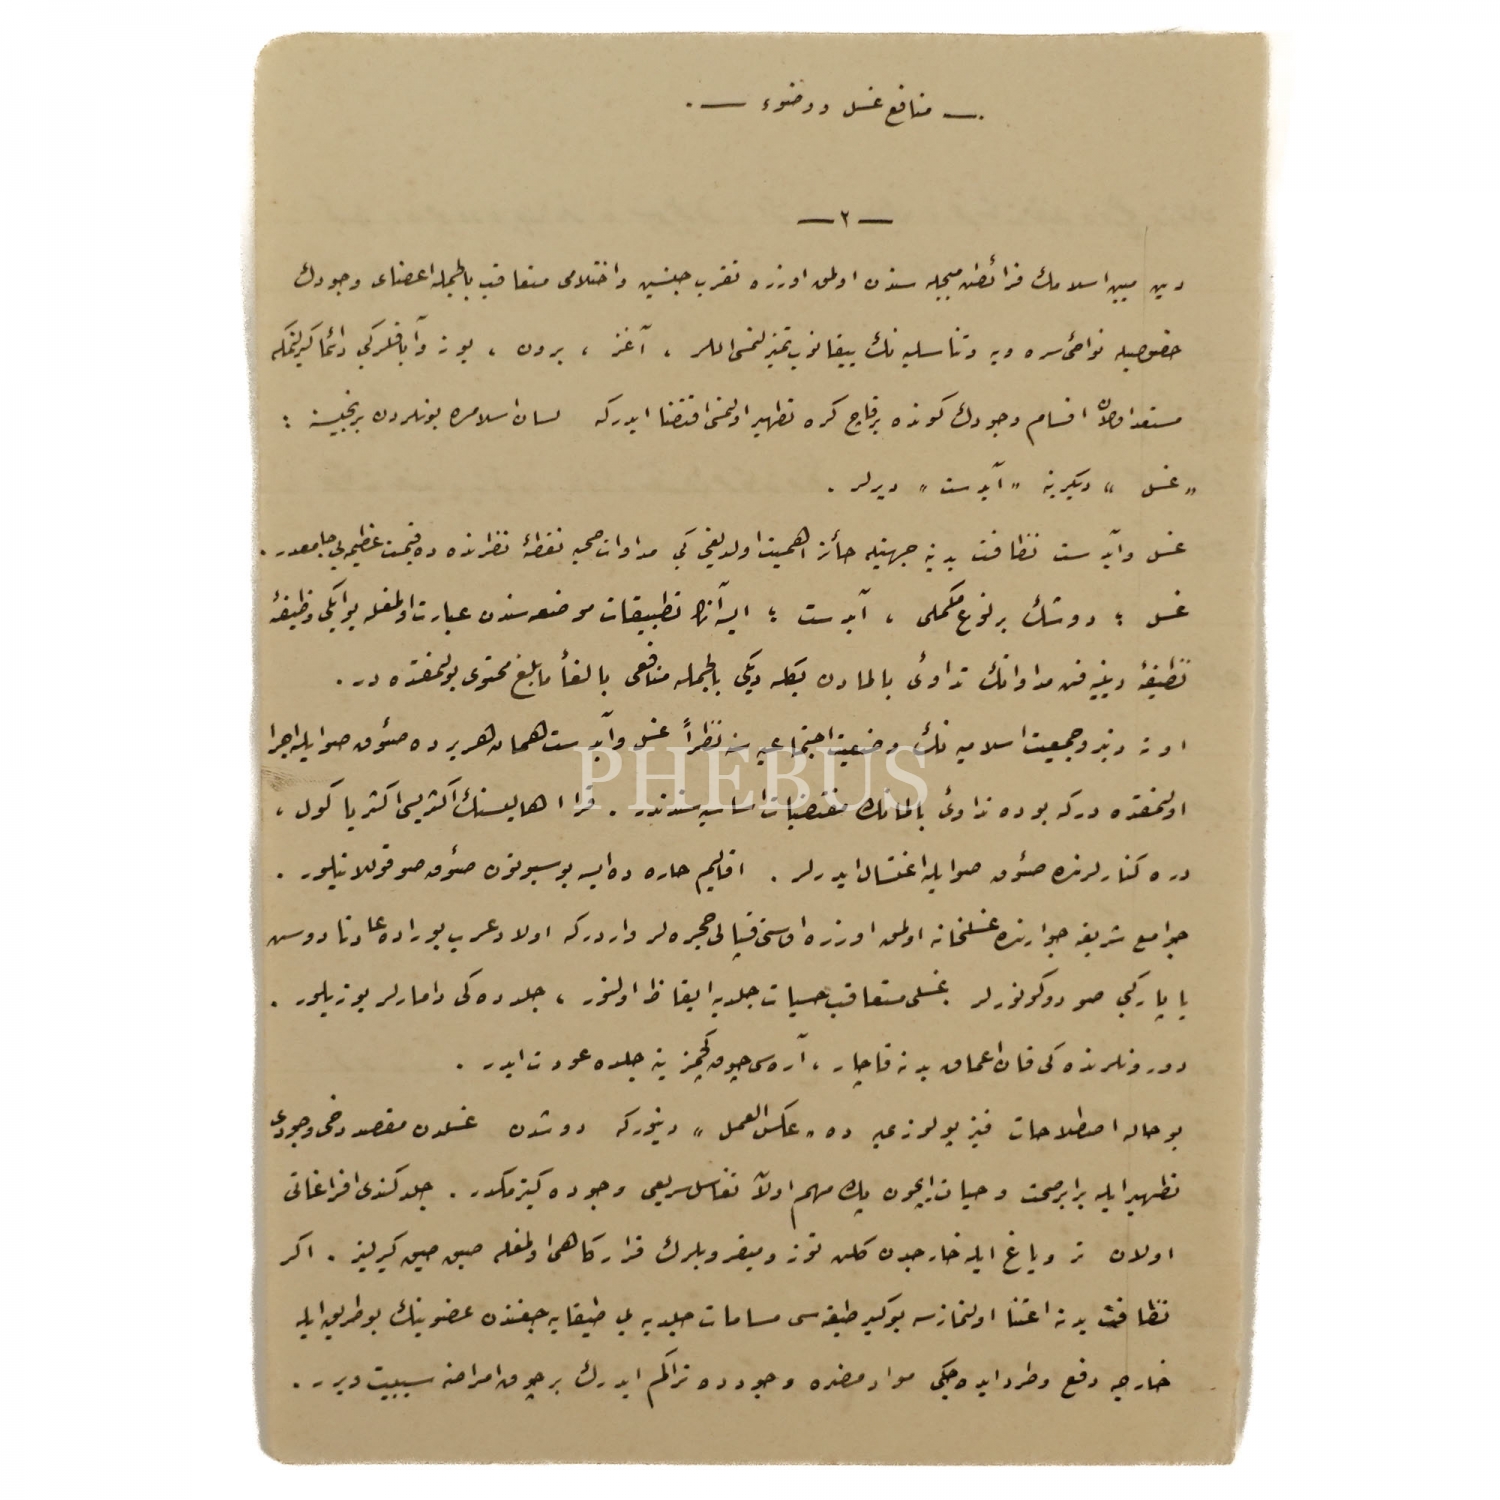 منافع غسل و وضوء
— ٢ —
دین مبین اسلامك فرائض مبجله سندن اولمق اوزره تقرب جنسین و اختلامی متعاقب بالجمله اعضای وجودك
خصوصیله نواحئ سره ویه و تناسلیه نك ییقانوب تمیزلنمسی اللر ، آغز ، برون ، یوز و آیاقلر کبی دائما کیرلنمکه
مستعد اولان اقسام وجودك کونده برقاچ کره تطهیر اولنمسی اقتضا ایدرکه لسان اسلامده بونلردن برنجیسنه :
« غسل » دیکرینه « آبدست » دیرلر .
غسل و آبدست نظافت بدنیه جهتیله حائز اهمیت اولدیغی کبی مداوات صحیه نقطۀ نظرنده ده قیمت عظیمه یی جامعدر .
غسل ؛ دوشك برنوع مکملی ، آبدست ؛ ایسه آنك تطبیقات موضعه سندن عبارت اولمغله بو ایکی وظیفۀ
نظیفۀ دینیه فن مداواتك تداوئ بالمادن بکله دیکی بالجمله منافعی بالغاً مابلغ محتوی بولنمقده در .
اوته دنبرو جمعیت اسلامیه نك وضعیت اجتماعیه سنه نظراً غسل و آبدست همان هریرده صئوق صو ایله اجرا
اولنمقده درکه بوده تداوئ بالمانك مقتضیات اساسیه سندندر . قرا اهالیسنك اکثریسی اکثریا کول ،
دره کنارلرنده صئوق صو ایله اغتسال ایدرلر . اقالیم حاره ده ایسه بوسبوتون صئوق صو قوللانیلور .
جوامع شریفه جوارنده غسلخانه اولمق اوزره اوستی قپالی حجره لر واردرکه اولاد عرب بوراده عادتا دوش
یاپار کبی صو دوکونورلر . غسلی متعاقب حسیات جلدیه ایقاظ اولنور ، جلدده کی دامارلر بوزیلور .
دورونلرنده کی قان اعماق بدنه قاچار ، آره سی چوق کچمز ینه جلده عودت ایدر .
بو حاله اصطلاحات فیزیولوژیه ده « عکس العمل » دینورکه دوشدن غسلدن مقصد دخی وجودی
تطهیر ایله برابر صحت و حیات ایچون پك مهم اولان تفاسل سریعی وجوده کتیرمکدر . جلد کندی افراغاتی
اولان تر و یاغ ایله خارجدن کلن توز و میقروبلرك قرارکاهی اولمغله صیق صیق کیرلنیر . اکر
نظافت بدنه اعتنا اولنمازسه بو کیر طبقه سی مسامات جلدیه یی طیقایه جغندن عضویتك بو طریق ایله
خارجه دفع و طرد ایده جکی مواد مضره وجودده تراکم ایدرك برچوق امراضه سببیت ویرر .